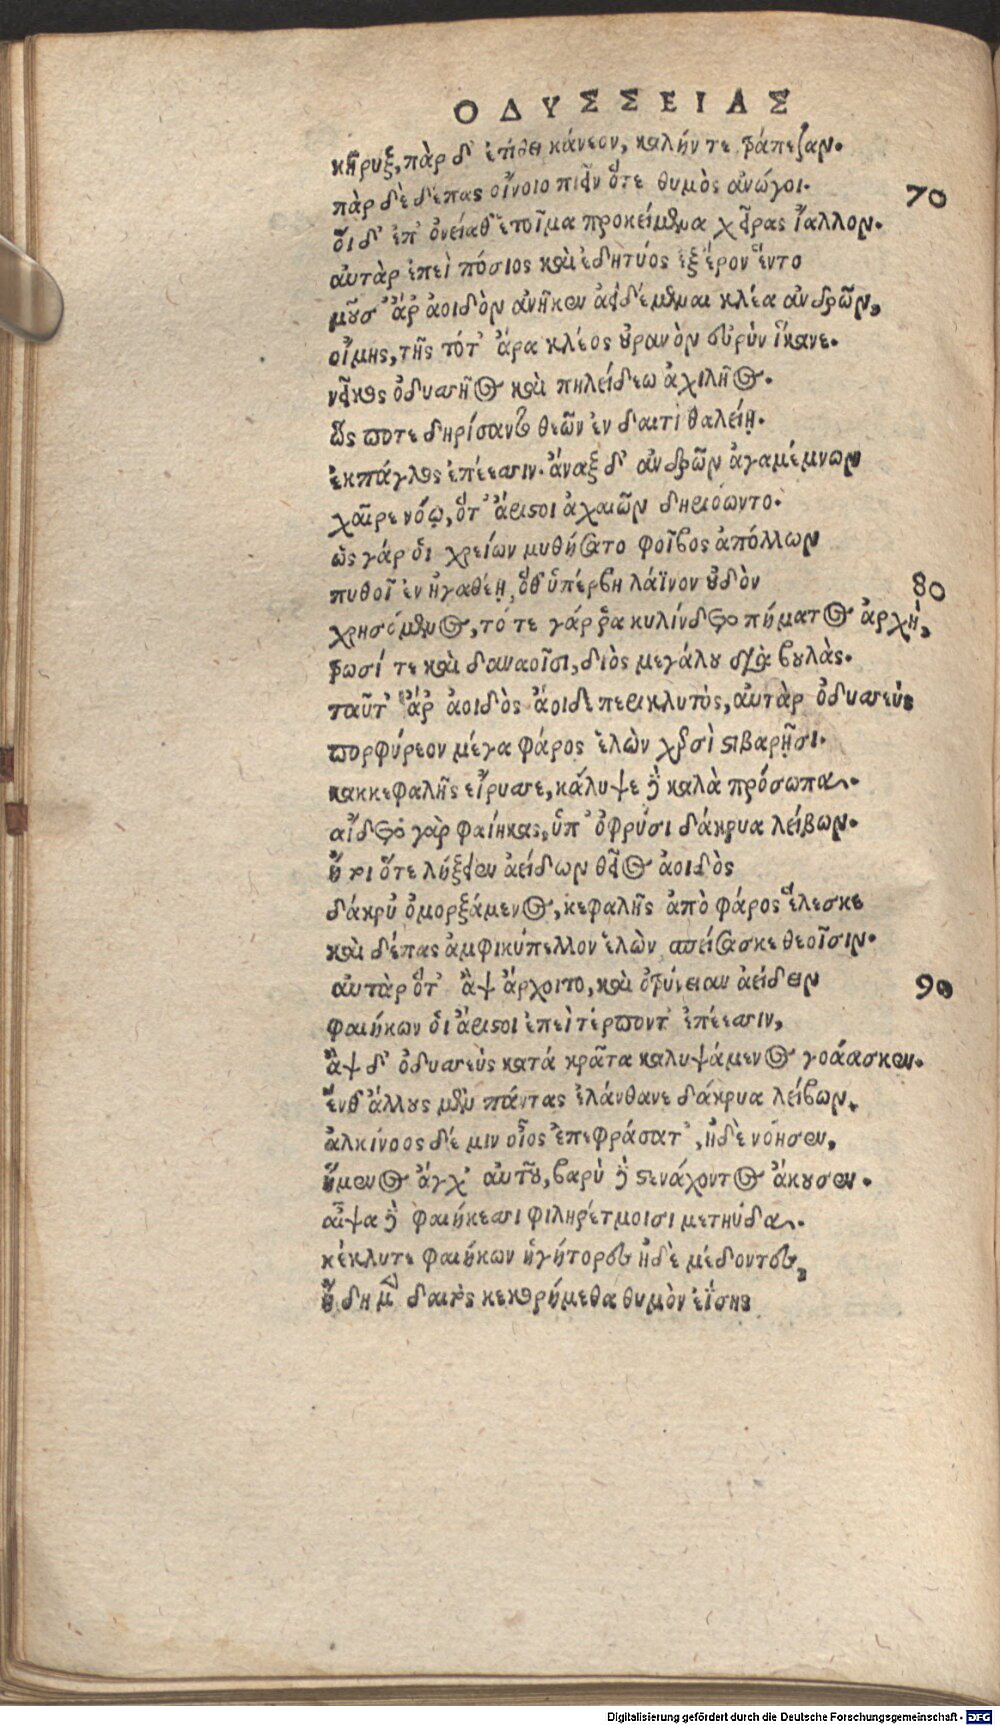 ΟΔΥΣΣΕΙΑΣ
κῆρυξ, πὰρ δ' ἐτίθει κάνεον, καλήν τε τράπεζαν.
πὰρ δὲ δέπας οἴνοιο πιεῖν ὅτε θυμὸς ἀνώγοι. 70
οἵ δ' ἐπ' ὀνείαθ' ἑτοῖμα προκείμενα χεῖρας ἴαλλον.
αὐτὰρ ἐπεὶ πόσιος καὶ ἐδητύος ἐξ ἔρον ἕντο
μοῦσ' ἄρ' ἀοιδὸν ἀνῆκεν ἀειδέμεναι κλέα ἀνδρῶν,
οἴμης, τῆς τότ' ἄρα κλέος οὐρανὸν εὐρὺν ἵκανε.
νεῖκος ὀδυσσῆος καὶ πηλείδεω ἀχιλῆος.
ὥς ποτε δηρίσαντο θεῶν ἐν δαιτὶ θαλείῃ.
ἐκπάγλοις ἐπέεσσιν. ἄναξ δ' ἀνδρῶν ἀγαμέμνων
χαῖρε νόῳ, ὅτ' ἄριστοι ἀχαιῶν δηριόωντο.
ὣς γάρ οἱ χρείων μυθήσατο φοῖβος ἀπόλλων
πυθοῖ ἐν ἠγαθέῃ, ὅθ' ὑπέρβη λάϊνον οὐδὸν 80
χρησόμενος, τότε γάρ ῥα κυλίνδετο πήματος ἀρχὴ,
τρωσί τε καὶ δαναοῖσι, διὸς μεγάλου διὰ βουλάς.
ταῦτ' ἄρ' ἀοιδὸς ἄοιδε περικλυτὸς, αὐτὰρ ὀδυσσεὺς
πορφύρεον μέγα φάρος ἑλὼν χερσὶ στιβαρῇσι.
κακκεφαλῆς εἴρυσσε, κάλυψε δὲ καλὰ πρόσωπα.
αἴδετο γὰρ φαίηκας, ὑπ' ὀφρύσι δάκρυα λείβων.
ἤ τοι ὅτε λήξειεν ἀείδων θεῖος ἀοιδὸς
δάκρυ' ὀμορξάμενος, κεφαλῆς ἀπὸ φάρος ἕλεσκε
καὶ δέπας ἀμφικύπελλον ἑλὼν σπείσασκε θεοῖσιν.
αὐτὰρ ὅτ' ἂψ ἄρχοιτο, καὶ ὀτρύνειαν ἀείδειν 90
φαιήκων οἱ ἄριστοι ἐπεὶ τέρποντ' ἐπέεσσιν,
ἂψ δ' ὀδυσσεὺς κατά κρᾶτα καλυψάμενος γοάασκεν.
ἔνθ' ἄλλους μὲν πάντας ἐλάνθανε δάκρυα λείβων,
ἀλκίνοος δέ μιν οἶος ἐπεφράσατ', ἠδὲ νόησεν,
ἥμενος ἄγχ' αὐτοῦ, βαρὺ δὲ στενάχοντος ἄκουσεν.
αἶψα δὲ φαιήκεσσι φιληρέτμοισι μετηύδα.
κέκλυτε φαιήκων ἡγήτορες ἠδὲ μέδοντες,
ἤδη μὲν δαιτὸς κεκορήμεθα θυμὸν ἐΐσης
Digitalisierung gefördert durch die Deutsche Forschungsgemeinschaft - DFG